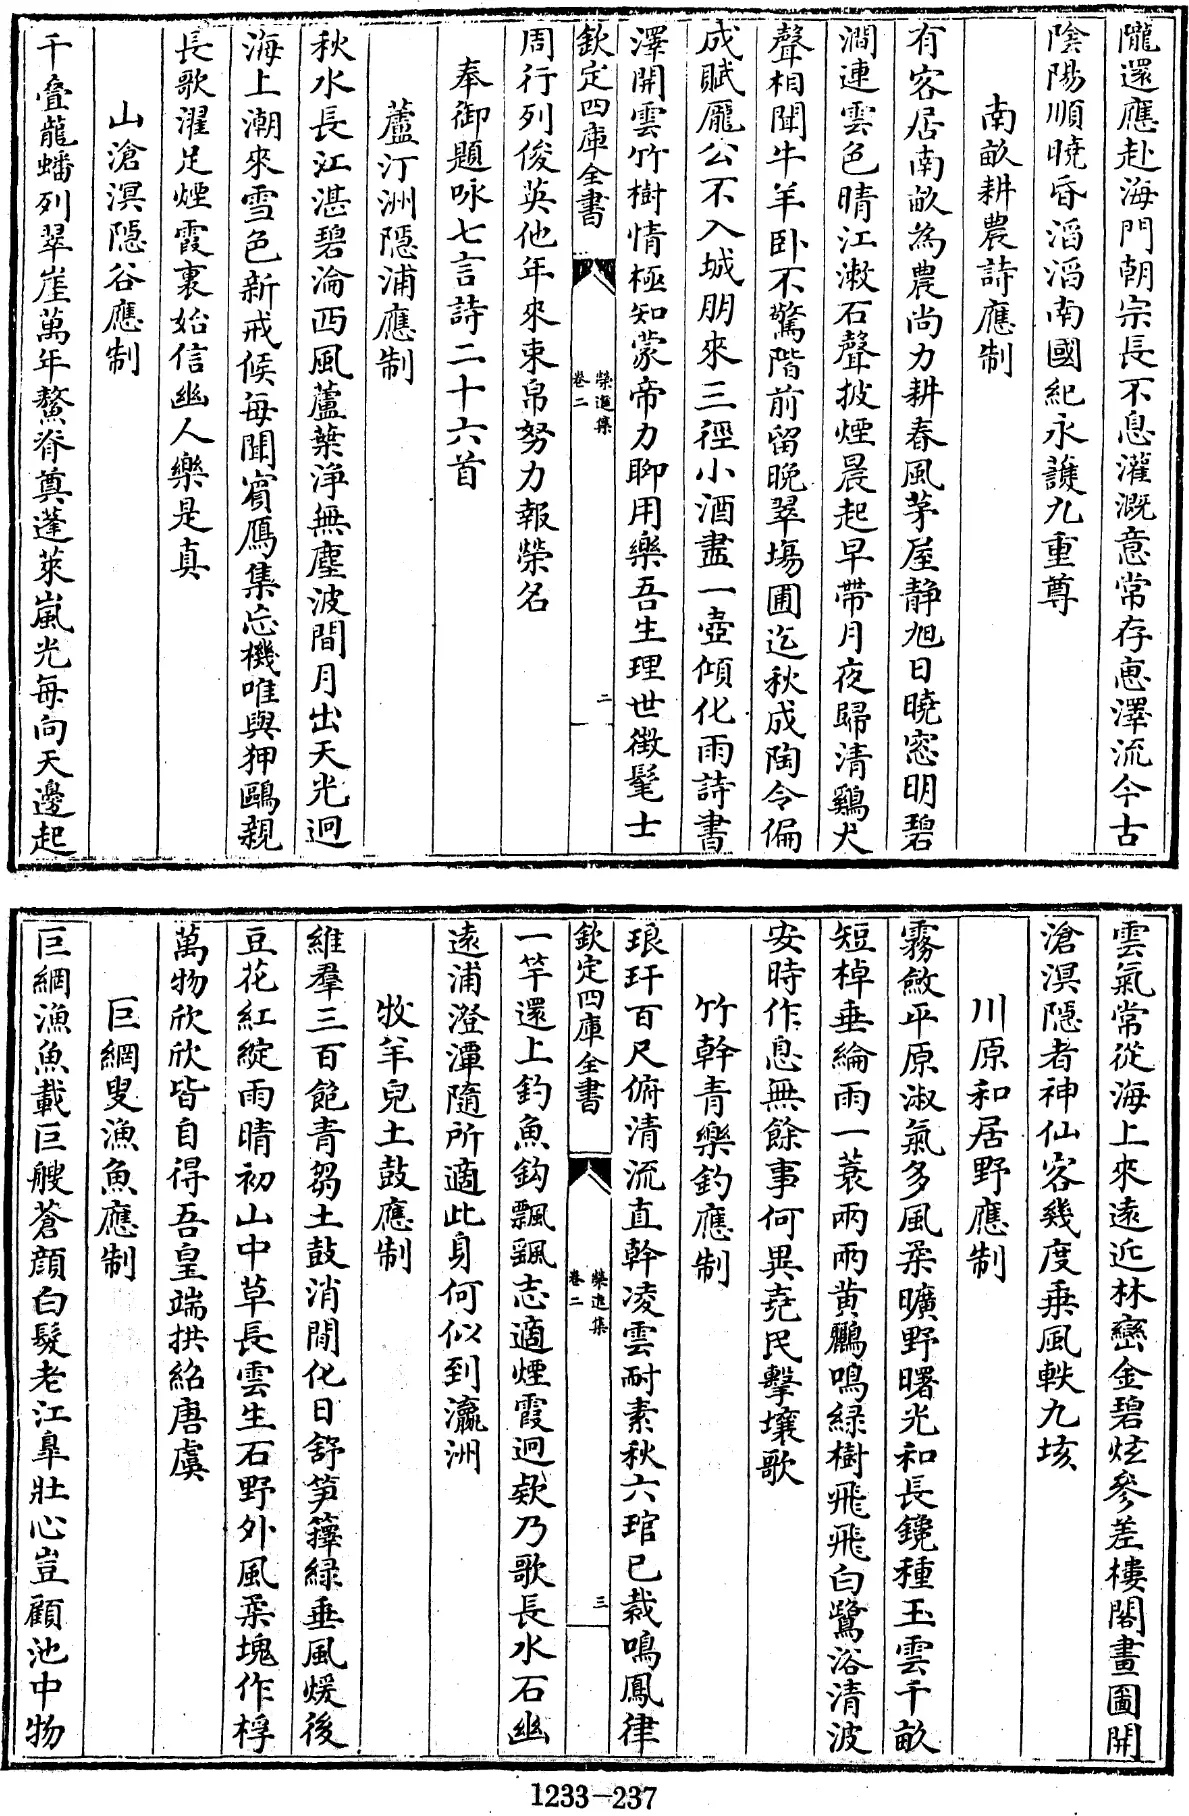 隴還應赴海門朝宗長不息灌溉意常存恵澤流今古
陰陽順曉昏滔滔南國紀永護九重尊
南畝耕農詩應制
有客居南畝為農尚力耕春風茅屋静旭日曉窓明碧
澗連雲色晴江漱石聲披煙晨起早帶月夜歸清鷄犬
聲相聞牛羊卧不驚階前留晚翠場圃迄秋成陶令偏
成賦龐公不入城朋來三徑小酒盡一壺傾化雨詩書
澤開雲竹樹情極知蒙帝力聊用樂吾生理世徵髦士
欽定四庫全書
榮進集
卷二
二
周行列俊英他年來束帛努力報榮名
奉御題咏七言詩二十六首
蘆汀洲隱浦應制
秋水長江湛碧淪西風蘆葉浄無塵波間月出天光迥
海上潮來雪色新戒候每聞賓鴈集忘機唯與狎鷗親
長歌濯足煙霞裏始信幽人樂是真
山滄溟隠谷應制
千疊龍蟠列翠崖萬年鰲脊奠蓬萊嵐光每向天邊起
雲氣常從海上來遠近林巒金碧炫參差樓閣畫圖開
滄溟隠者神仙客幾度乗風軼九垓
川原和居野應制
霧斂平原淑氣多風柔曠野曙光和長鑱種玉雲千畝
短棹垂綸雨一蓑兩兩黄鸝鳴綠樹飛飛白鷺浴清波
安時作息無餘事何異堯民擊壤歌
竹幹青樂釣應制
琅玕百尺俯清流直幹凌雲耐素秋六琯已裁鳴鳳律
欽定四庫全書
榮進集
卷二
三
一竿還上釣魚鈎飄飄志適煙霞迥欵乃歌長水石幽
遠浦澄潭隨所適此身何似到瀛洲
牧羊兒土鼓應制
維羣三百飽青芻土鼓消閒化日舒笋籜緑垂風煖後
豆花紅綻雨晴初山中草長雲生石野外風柔塊作桴
萬物欣欣皆自得吾皇端拱紹唐虞
巨網叟漁魚應制
巨網漁魚載巨艘蒼顔白髮老江臯壯心豈顧池中物
1233-237